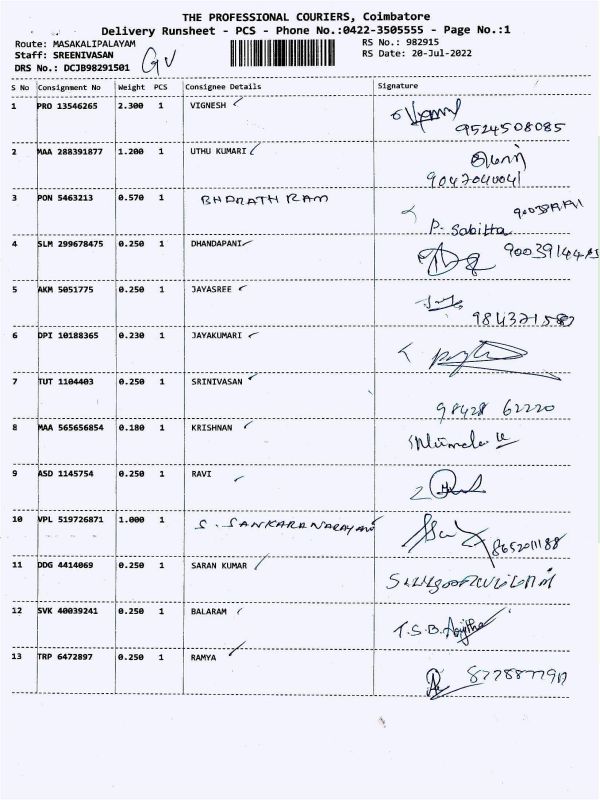 THE PROFESSIONAL COURIERS, Coimbatore
Delivery Runsheet - PCS - Phone No.:0422-3505555 - Page No.:1
Route: MASAKALIPALAYAM RS No.: 982915
Staff: SREENIVASAN RS Date: 20-Jul-2022
DRS No.: DCJB98291501 GV
S No Consignment No Weight PCS Consignee Details Signature
1 PRO 13546265 2.300 1 VIGNESH
9524508085
2 MAA 288391877 1.200 1 UTHU KUMARI
9047040041
3 PON 5463213 0.570 1 BHARATH RAM
P. Sabitha
4 SLM 299678475 0.250 1 DHANDAPANI
5 AKM 5051775 0.250 1 JAYASREE
6 DPI 10188365 0.230 1 JAYAKUMARI
7 TUT 1104403 0.250 1 SRINIVASAN
98428 62220
8 MAA 565656854 0.180 1 KRISHNAN
9 ASD 1145754 0.250 1 RAVI
10 VPL 519726871 1.000 1 S. SANKARANARAYAN
11 DDG 4414069 0.250 1 SARAN KUMAR
12 SVK 40039241 0.250 1 BALARAM
T.S.B.
13 TRP 6472897 0.250 1 RAMYA